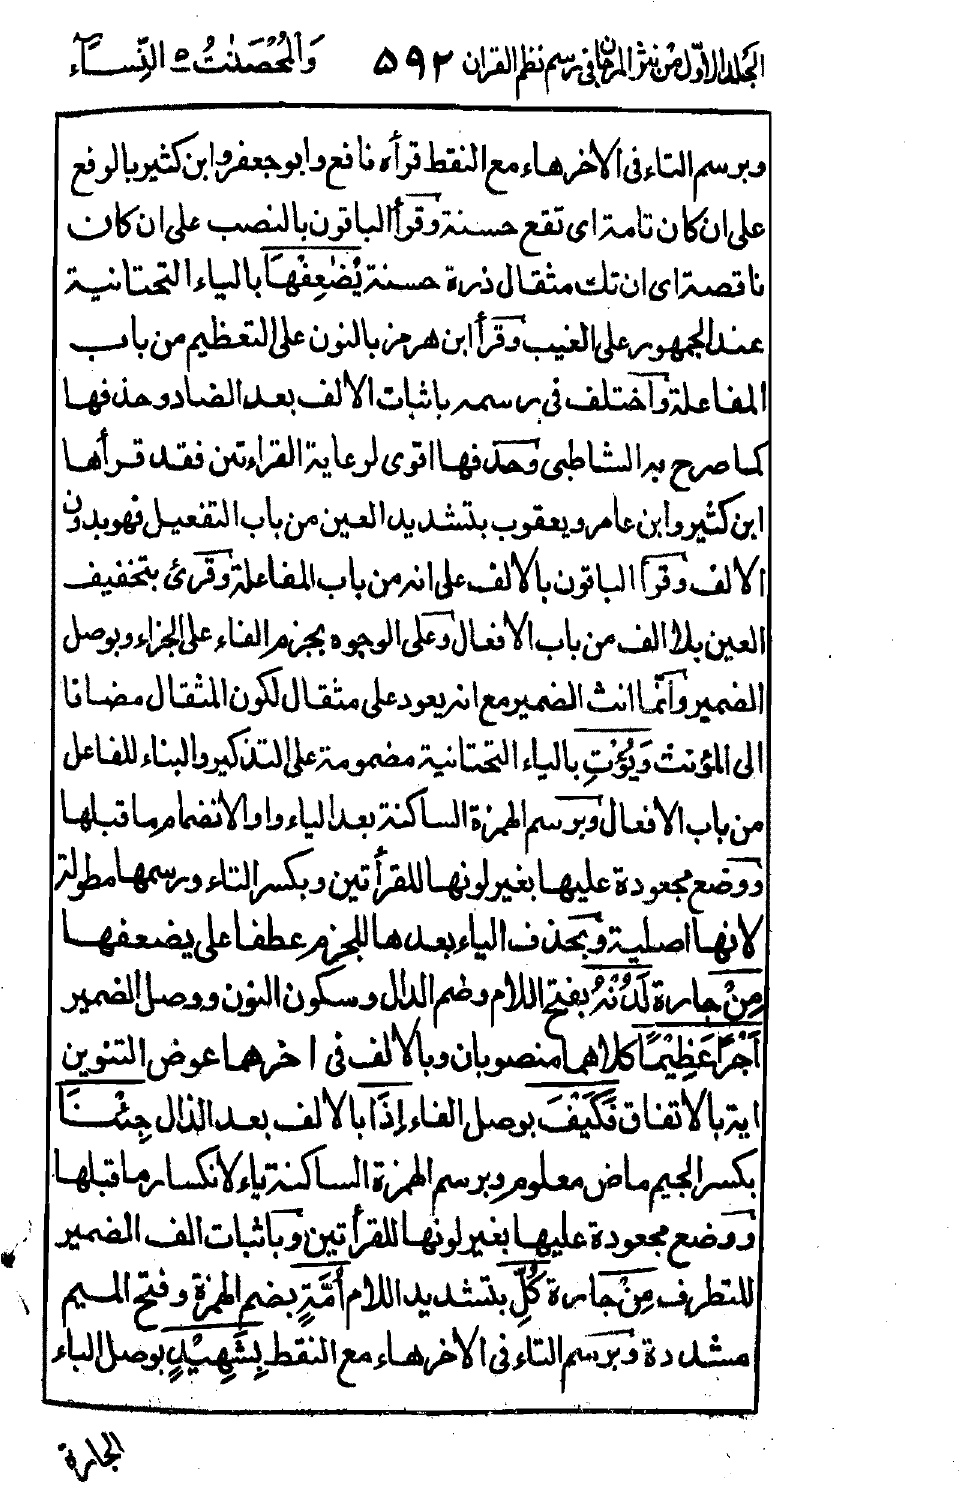 الجلد الاول من نثر المرجان فى رسم نظم القران ٥٩٢ وَالْمُحْصَنٰتُ ٥ النِّسَآء
وبرسم التاء فى الاخر هاء مع النقط قرأه نافع وابو جعفر وابن كثير بالرفع
على ان كان تامة اى تقع حسنة وقرأ الباقون بالنصب على ان كان
ناقصة اى ان تك مثقال ذرة حسنة يُضٰعِفْهَا بالياء التحتانية
عند الجمهور على الغيب وقرأ ابن هرمز بالنون على التعظيم من باب
المفاعلة واختلف فى رسمه باثبات الالف بعد الضاد وحذفها
كما صرح به الشاطبى وحذفها اقوى لرعاية القراءتين فقد قرأها
ابن كثير وابن عامر ويعقوب بتشديد العين من باب التفعيل فهو بدون
الالف وقرأ الباقون بالالف على انه من باب المفاعلة وقرئ بتخفيف
العين بلا الف من باب الافعال وعلى الوجوه بجزم الفاء على الجزاء وبوصل
الضمير وانّما انث الضمير مع انه يعود على مثقال لكون المثقال مضافا
الى المؤنث وَيُؤْتِ بالياء التحتانية مضمومة على التذكير والبناء للفاعل
من باب الافعال وبرسم الهمزة الساكنة بعد الياء واوا لانضمام ما قبلها
ووضع مجعودة عليها بغير لونها للقرأتين وبكسر التاء ورسمها مطولة
لانها اصلية وبحذف الياء بعدها للجزم عطفا على يضعفها
مِنْ جارة لَدُنْهُ بفتح اللام وضم الدال وسكون النون ووصل الضمير
اَجْرًا عَظِيْمًا كلاهما منصوبان وبالالف فى اخرهما عوض التنوين
اية بالاتفاق فَكَيْفَ بوصل الفاء إِذَا بالالف بعد الذال جِئْنَا
بكسر الجيم ماض معلوم وبرسم الهمزة الساكنة ياء لانكسار ما قبلها
ووضع مجعودة عليها بغير لونها للقرأتين وباثبات الف الضمير
للتطرف مِنْ جارة كُلِّ بتشديد اللام أُمَّةٍ بضم الهمزة وفتح الميم
مشددة وبرسم التاء فى الاخر هاء مع النقط بِشَهِيْدٍ بوصل الباء
الجارة